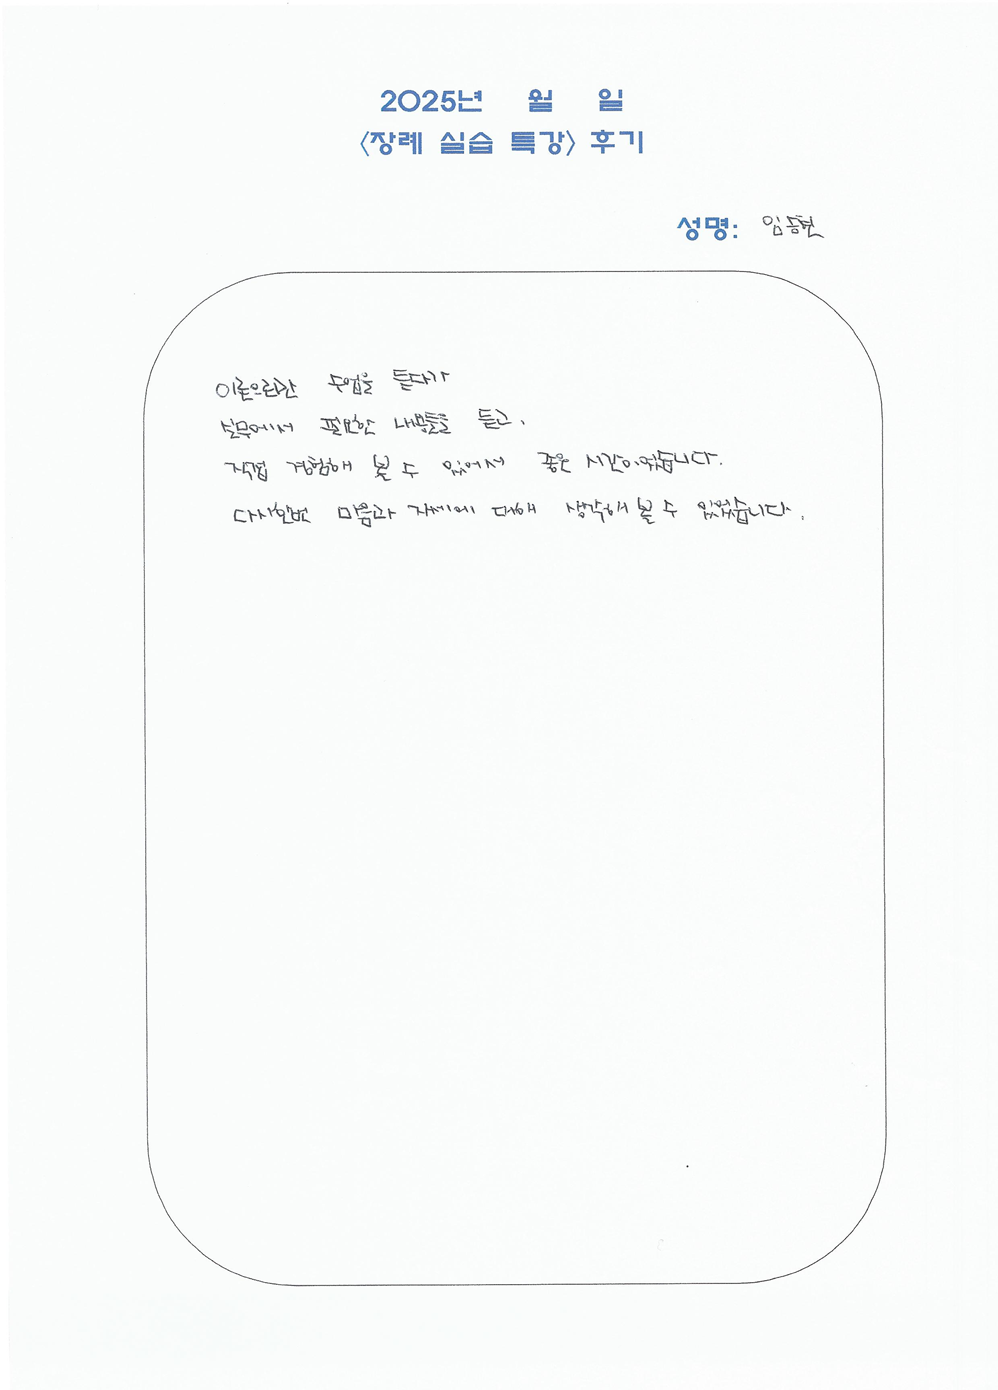 2025년 월 일
<장례 실습 특강> 후기
성명: 임승현
이론으로만 수업을 듣다가
실무에서 필요한 내용들을 듣고,
직접 경험해 볼 수 있어서 좋은 시간이었습니다.
다시한번 마음과 자세에 대해 생각해 볼 수 있었습니다.